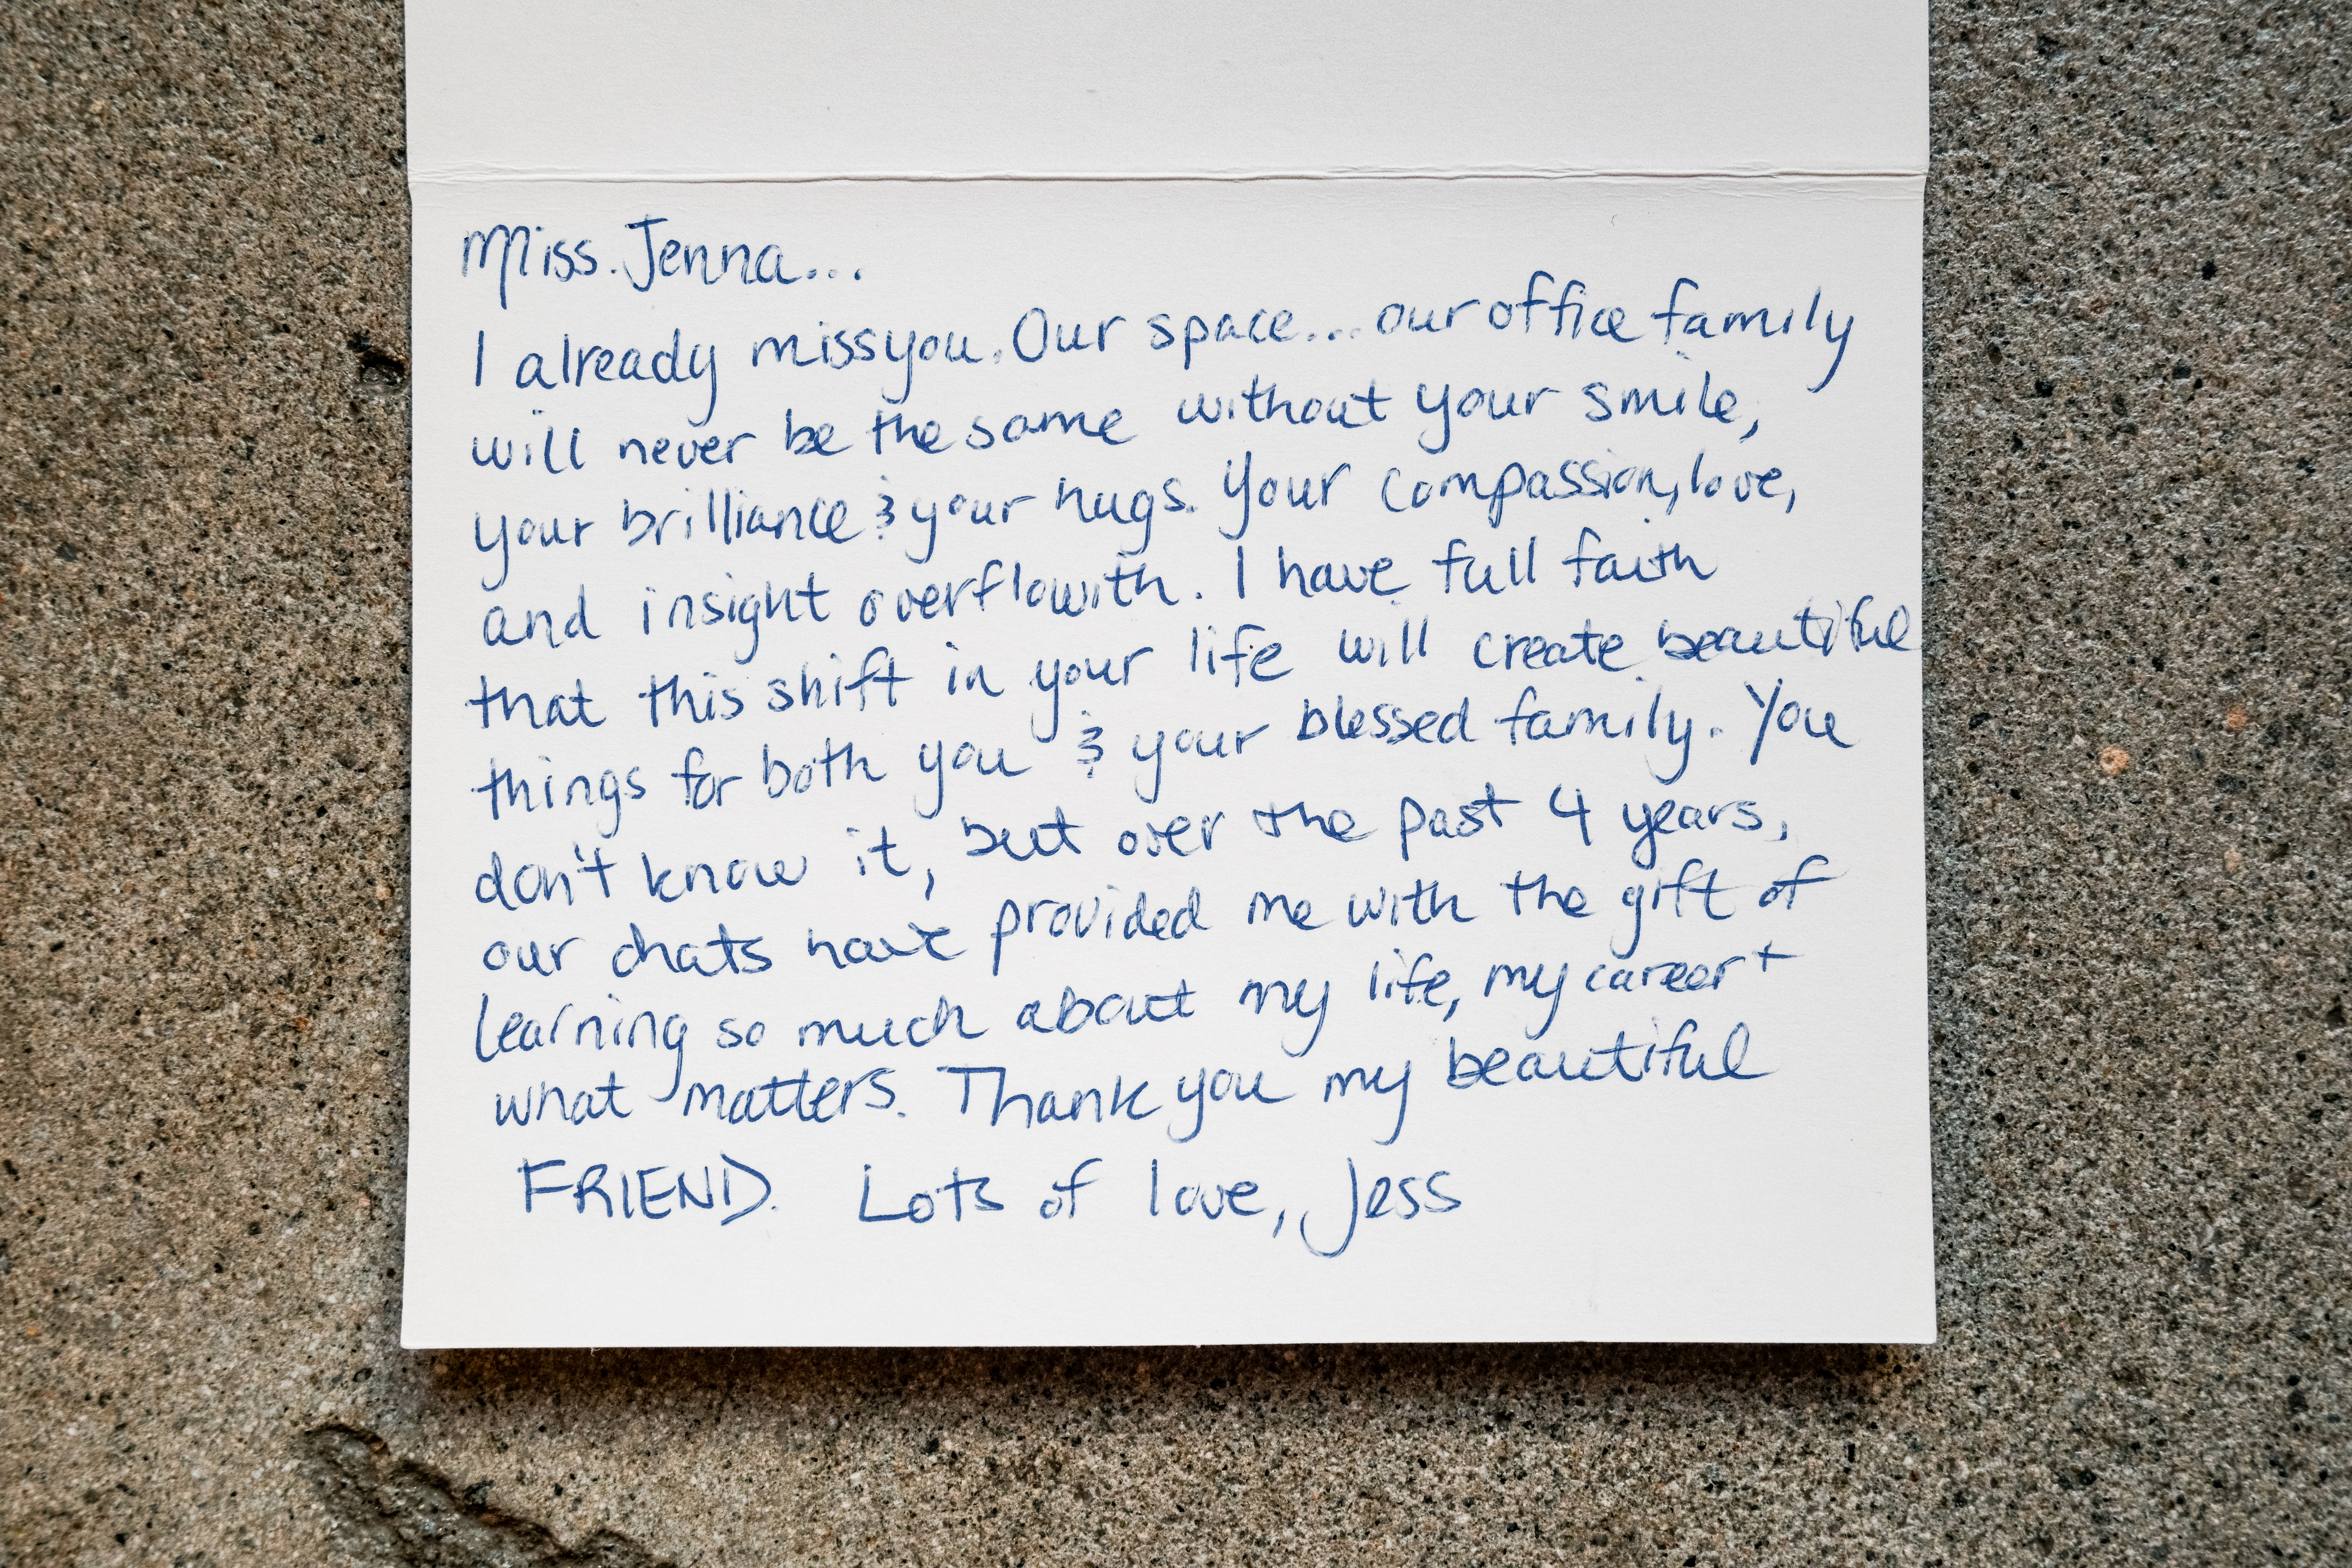 Miss. Jenna...
I already miss you. Our space... our office family
will never be the same without your smile,
your brilliance & your hugs. Your compassion, love,
and insight overflowith. I have full faith
that this shift in your life will create beautiful
things for both you & your blessed family. You
don't know it, but over the past 4 years,
our chats have provided me with the gift of
learning so much about my life, my career +
what matters. Thank you my beautiful
FRIEND. Lots of love, Jess